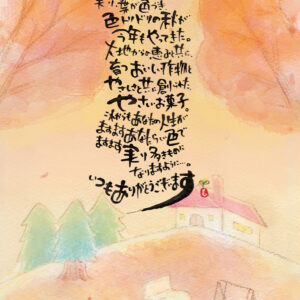 葉が色づき
色トリドリの秋が
今年もやってきた。
大地からの恵みと共に
育つおいしい作物と
やさしさと共に創られた
やさしいお菓子。
これからもあなたの人生が
ますますあなたらしい色で
実り多きものに
なりますように…。
いつもありがとうございます